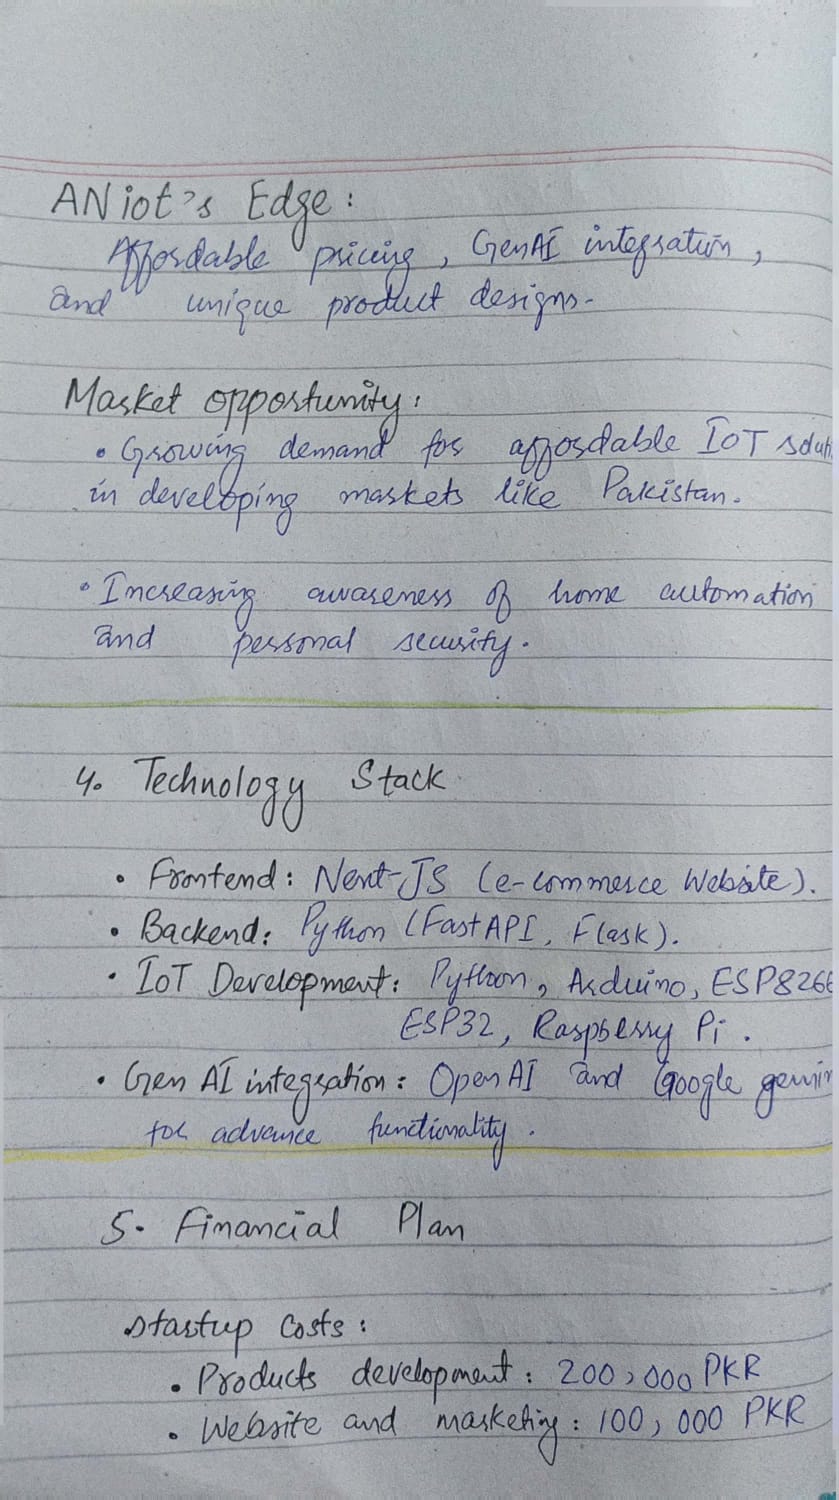 ANiot's Edge:
Affordable pricing, GenAI integration,
and unique product designs.
Market opportunity:
• Growing demand for affordable IoT
in developing markets like Pakistan.
• Increasing awareness of home automation
and personal security.
4. Technology Stack
• Frontend: Next-JS (e-commerce Website).
• Backend: Python (FastAPI, Flask).
• IoT Development: Python, Arduino, ESP8266
ESP32, Raspberry Pi.
• Gen AI integration: OpenAI and Google
for advance functionality.
5. Financial Plan
Startup Costs:
• Products development: 200,000 PKR
• Website and marketing: 100,000 PKR